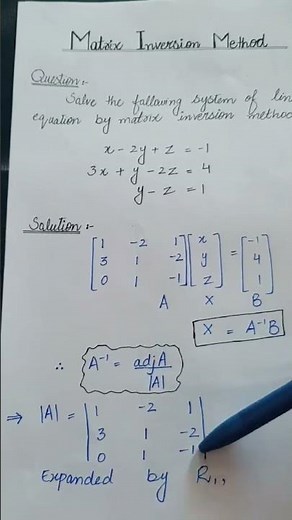 Matrix Inversion Method
Question:-
Solve the fallowing system of lin
equation by matrix inversion method
x - 2y + z = -1
3x + y - 2z = 4
y - z = 1
Salution:-
[1 -2 1] [x] = [-1]
[3 1 -2] [y] [4]
[0 1 -1] [z] [1]
A X B
X = A⁻¹B
∴ A⁻¹ = adj A / |A|
⇒ |A| = | 1 -2 1 |
| 3 1 -2 |
| 0 1 -1 |
Expanded by R₁,,